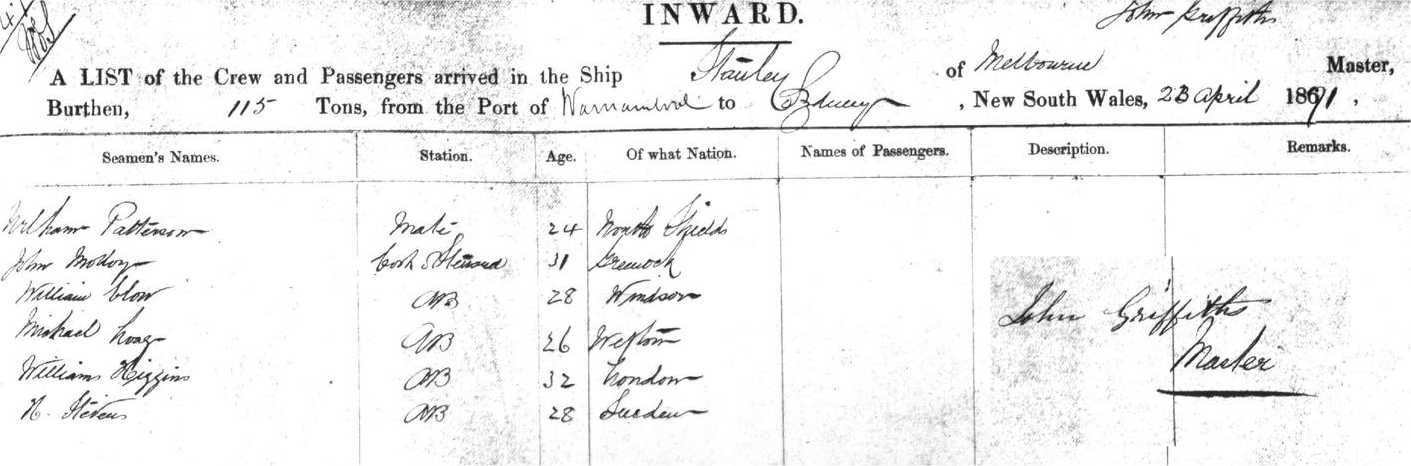 INWARD.
John Griffiths
A LIST of the Crew and Passengers arrived in the Ship Stanley of Melbourne Master,
Burthen, 115 Tons, from the Port of Warnambool to Sydney, New South Wales, 23 April 1871,
Seamen's Names. Station. Age. Of what Nation. Names of Passengers. Description. Remarks.
William Patterson Mate 24 North Shields
John Molloy Cook & Steward 31 Greenock
William Clow AB 28 Windsor
Michael AB 26
William Higgins AB 32 London
N. Stevens AB 28 Sweden
John Griffiths
Master